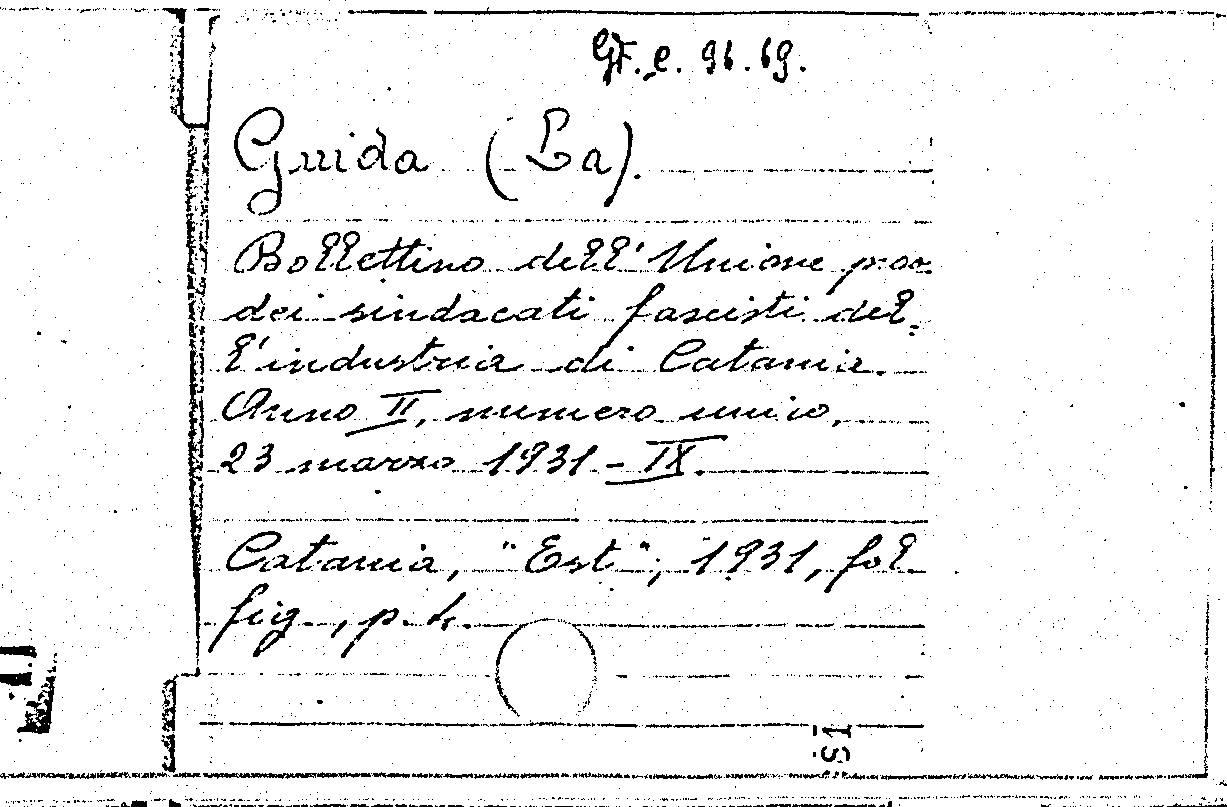 Gf. e. 96. 69.
Guida (La).
Bollettino dell'Unione prov.
dei sindacati fascisti del=
l'industria di Catania.
Anno II, numero unico,
23 marzo 1931 - IX.
Catania, "Est", 1931, fol.
fig., p. 4.